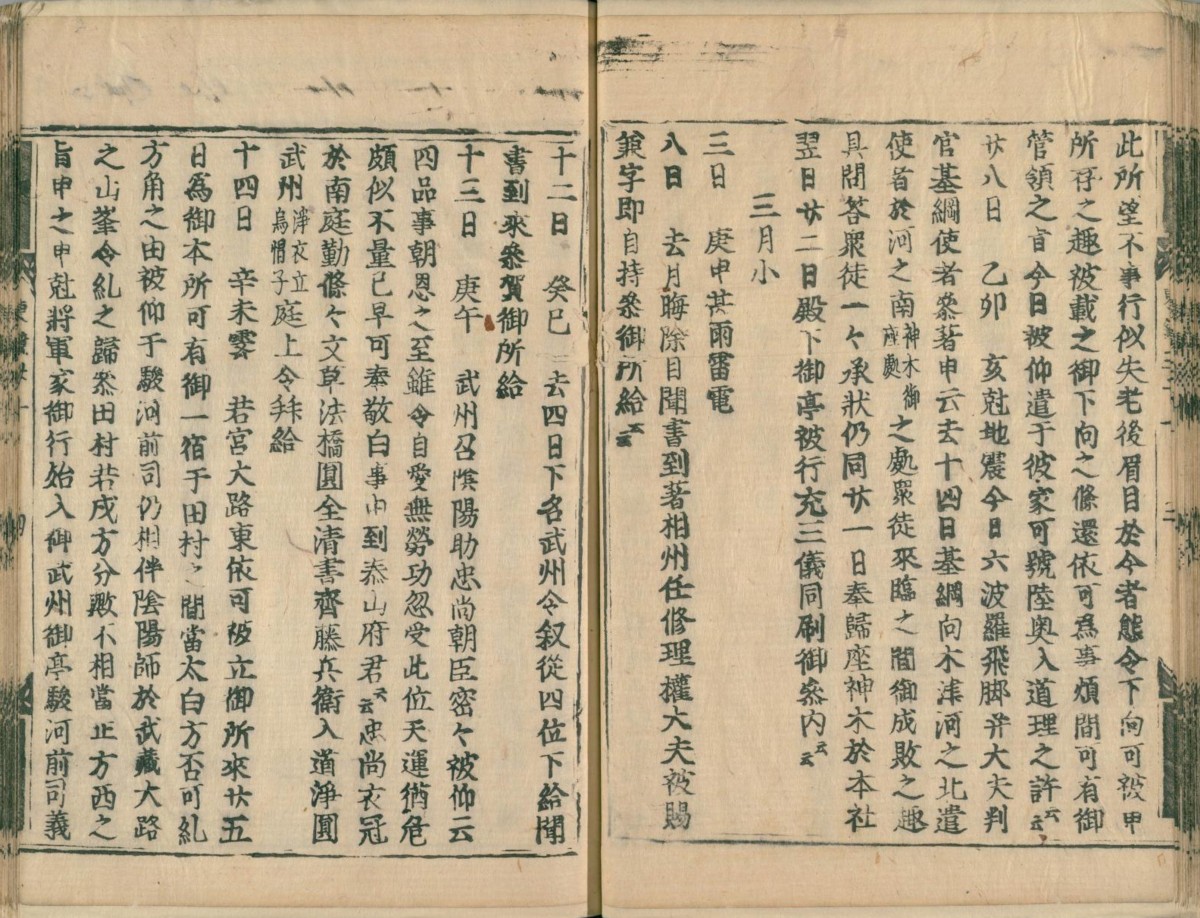 此所望不事行似失老後眉目於今者態令下向可被申
所存之趣被載之御下向之條還依可為事煩間可有御
管領之旨今日被仰遣于彼家可號陸奥入道理之許云云
廿八日 乙卯 亥尅地震今日六波羅飛脚并大夫判
官基綱使者參著申云去十四日基綱向木津河之北遣
使者於河之南神木御座處之處眾徒來臨之間御成敗之趣
具問答眾徒一々承狀仍同廿一日奉歸座神木於本社
翌日廿二日殿下御亭被行充三儀同刷御參内云云
三月小
三日 庚申甚雨雷電
八日 去月晦除目聞書到著相州任修理權大夫被賜
兼字即自持參御所給云云
十二日 癸巳 去四日下名武州令叙從四位下給聞
書到來參賀御所給
十三日 庚午 武州召陰陽助忠尚朝臣密々被仰云
四品事朝恩之至雖令自愛無勞功忽受此位天運猶危
頗似不量已早可奉敬白事由到泰山府君云云忠尚衣冠
於南庭勤條々文草法橋圓全清書齊藤兵衛入道淨圓
武州淨衣立烏帽子庭上令拜給
十四日 辛未霽 若宮大路東依可被立御所來廿五
日為御本所可有御一宿于田村之間當太白方否可糺
方角之由被仰于駿河前司仍相伴陰陽師於武藏大路
之山峯令糺之歸參田村若戌方分歟不相當正方西之
旨申之申尅將軍家御行始入御武州御亭駿河前司義